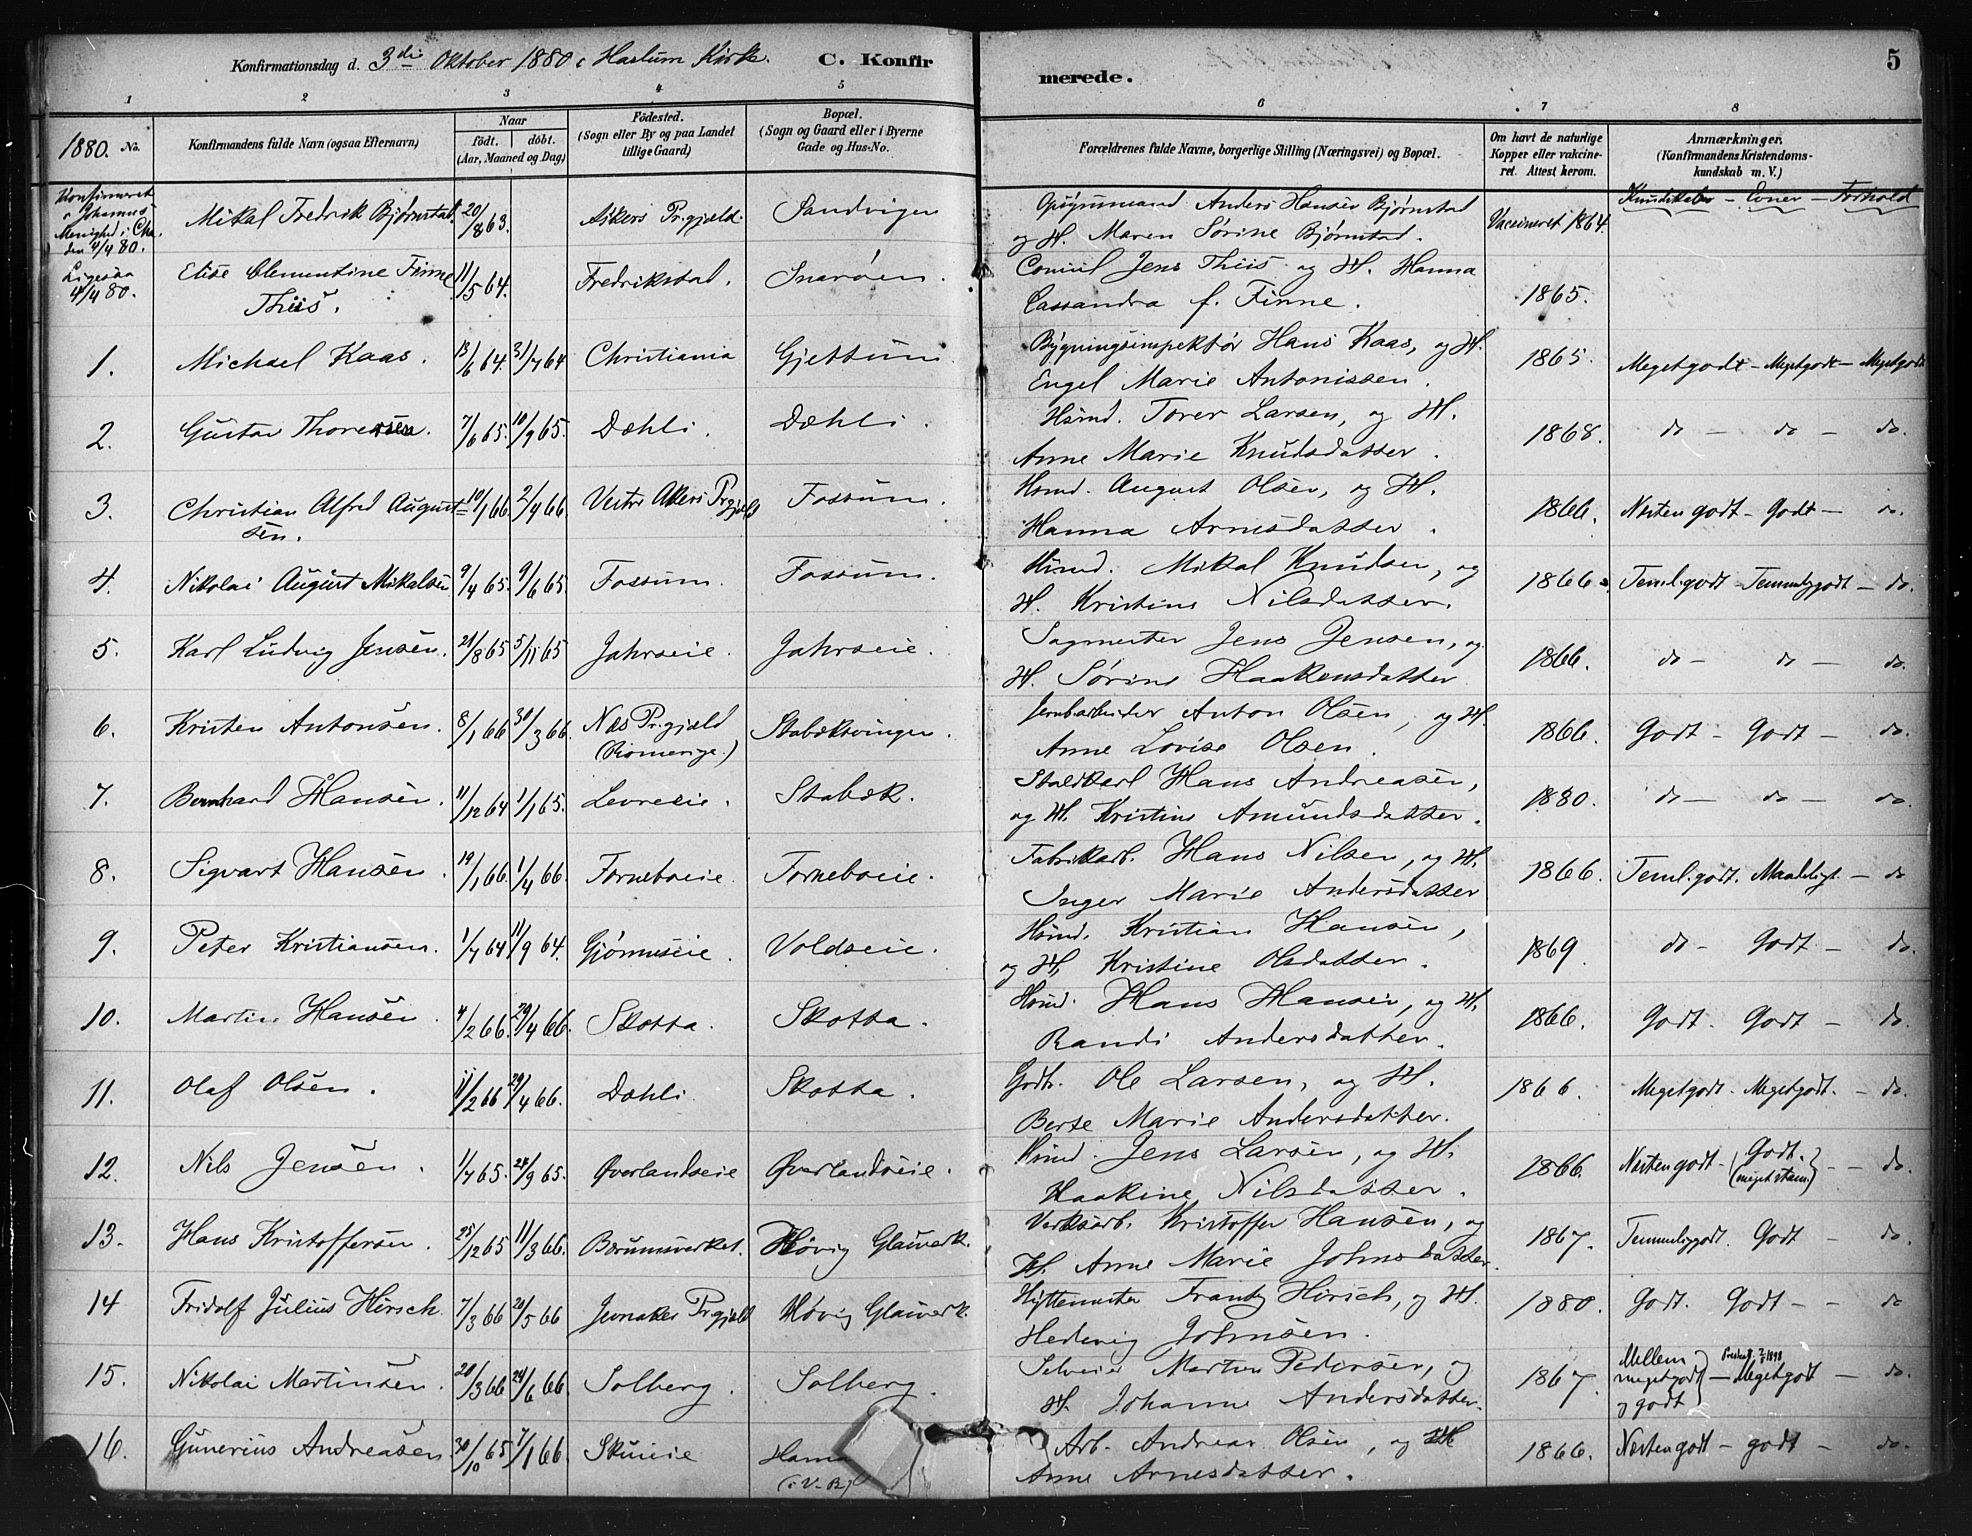 5
Konfirmationsdag d. 3die Oktober 1880 i Haslum Kirke. C. Konfirmerede.
1 2 3 4 5 6 7 8
1880. No.
Konfirmandens fulde Navn (ogsaa Efternavn)
Naar født. døbt. (Aar, Maaned og Dag)
Fødested. (Sogn eller By og paa Landet tillige Gaard)
Bopæl. (Sogn og Gaard eller i Byerne Gade og Hus-No.
Forældrenes fulde Navne, borgerlige Stilling (Næringsvei) og Bopæl.
Om havt de naturlige Kopper eller vakcineret. Attest herom.
Anmærkninger. (Konfirmandens Kristendomskundskab m. V.)
Kundskaber – Evner – Forhold
Konfirmeret i Johannes Menighed i Chra. den 4/4 80. Mikal Fredrik Bjørnstad. 20/8 63. Akers Pr.gjeld. Sandvigen
Anders Hansen Bjørnstad
og H. Maren Sørine Bjørnstad. Vaccineret 1864.
Ligesaa 4/4 80. Elise Clementine Finne Thiis. 11/5 64. Fredrikstad. Snarøen.
Consul Jens Thiis og H. Hanna
Cassandra f. Finne. 1865.
1. Michael Kaas. 13/6 64. 31/7 64 Christiania Gjettum
Bygningsinspektør Hans Kaas, og H.
Engel Marie Antonissen. 1865. Megetgodt – Megetgodt – Megetgodt
2. Gustav Thoresen. 7/6 65. 10/9 65. Dæhli. Dæhli.
Hsmd. Torer Larsen, og H.
Anne Marie Knudsdatter. 1868. do – do – do.
3. Christian Alfred Augustsen. 10/1 66. 2/4 66. Vestre Akers Prgjeld Fossum.
Hsmd. August Olsen, og H.
Hanna Arnesdatter. 1866. Næsten godt – Godt – do.
4. Nikolai August Mikalsen 9/4 65. 9/6 65. Fossum. Fossum.
Hsmd. Mikal Knudsen, og
H. Kristine Nilsdatter. 1866. Teml. godt – Temmeliggodt – do.
5. Karl Ludvig Jensen. 21/8 65 5/11 65 Jahrseie. Jahrseie.
Sagmester Jens Jensen, og
H. Sørine Haakensdatter 1866. do – do – do.
6. Kristen Antonsen. 8/1 66 30/3 66. Næs Pr.gjeld (Romerige.) Stabæksvingen.
Jernbarbeider Anton Olsen, og H.
Anne Lovise Olsen. 1866. Godt – Godt – do.
7. Bernhard Hansen. 11/12 64 1/1 65. Levreeie. Stabæk.
Staldkarl Hans Andreasen,
og H. Kristine Amundsdatter. 1880. do – do – do.
8. Sigvart Hansen. 19/1 66. 1/4 66. Forneboeie. Forneboeie.
Fabrikarb. Hans Nilsen, og H.
Inger Marie Andersdatter 1866. Teml. godt. Maadeligt – do
9. Peter Kristiansen. 1/7 64 11/9 64. Gjønneseie. Voldseie.
Hsmd. Kristian Hansen,
og H. Kristine Olsdatter. 1869 do – Godt – do
10. Martin Hansen. 4/2 66. 29/4 66. Skotta. Skotta.
Hsmd. Hans Hansen, og H.
Randi Andersdatter. 1866. Godt. Godt – do.
11. Olaf Olsen. 11/2 66 29/4 66. Dæhli. Skotta.
Gdbr. Ole Larsen, og H.
Berte Marie Andersdatter. 1866. Megetgodt – Megetgodt. – do
12. Nils Jensen. 1/7 65. 24/9 65. Øverlandseie Øverlandseie.
Hsmd. Jens Larsen, og H.
Haakine Nilsdatter. 1866. Næsten godt – Godt. (meget stam) – – do.
13. Hans Kristoffersen. 25/12 65 11/3 66. Bærumsverket. Høvig Glasverk.
Verksarb. Kristoffer Hansen, og
H. Anne Marie Johnsdatter. 1867. Temmeliggodt. Godt – do.
14 Fridolf Julius Hirsch. 7/3 66 20/5 66 Jevnaker Prgjeld Høvig Glasverk.
Hyttemester Frantz Hirsch, og H.
Hedevig Johnsen. 1880. Godt. Godt – – do
15. Nikolai Martinsen. 20/3 66 24/6 66. Solberg. Solberg.
Selveier Martin Pedersen, og
H. Johanne Andersdatter. 1867. Mellem megetgodt og godt – Megetgodt – do.
16. Gunerius Andreasen 30/10 65 7/1 66. Skuieie Hama
(i V-B)
Arb. Andreas Olsen, og H
Anne Arnesdatter. 1866. Næstengodt – godt – do.